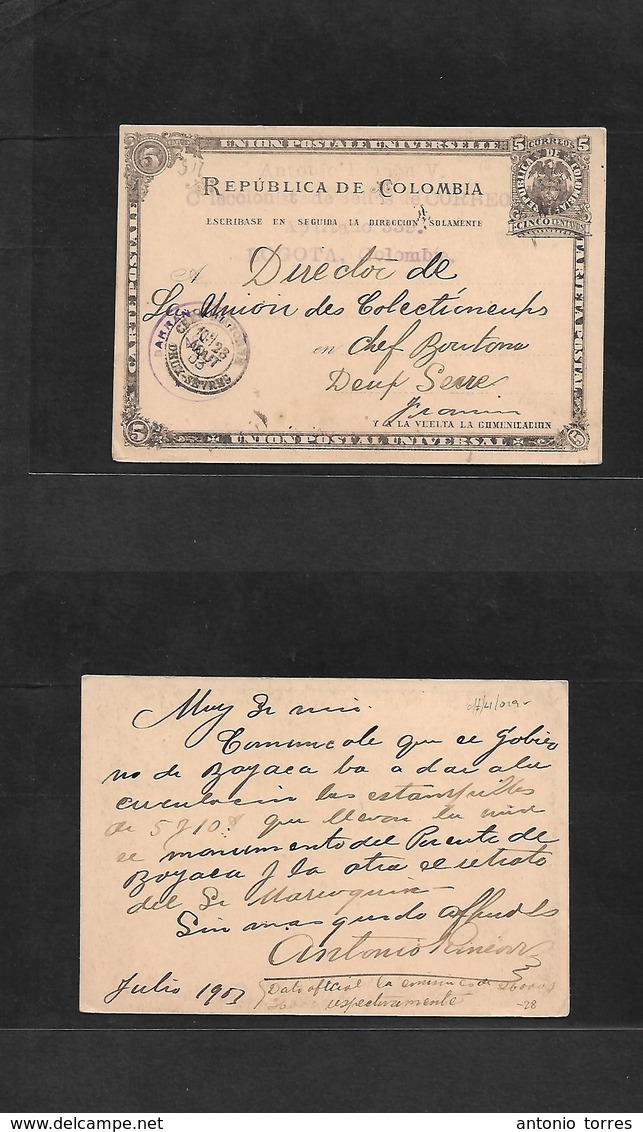 UNION POSTALE UNIVERSELLE
5 CORREOS 5
REPÚBLICA DE COLOMBIA
CINCO CENTAVOS
REPÚBLICA DE COLOMBIA
ESCRIBASE EN SEGUIDA LA DIRECCION SOLAMENTE
BOGOTA, Colombia.
CARTE POSTALE
TARJETA POSTAL
A Director de
La Union des Colectioneurs
en Chef Boutonne
Deux Sevre
DEUX-SEVRES
Y A LA VUELTA LA COMUNICACION
5 UNION POSTAL UNIVERSAL 5
Muy Sr mio.
Comunicole que el Gobier
no de Boyaca ba a dar a la
circulacion las estampillas
de 5 y 10 $ que llevan la una
el monumento del Puente de
Boyaca y la otra el retrato
del Sr Marroquin
Sin mas quedo
Antonio Rincon
Julio 1903
Dato oficial la emision es de
respectivamente
-28
antonio torres